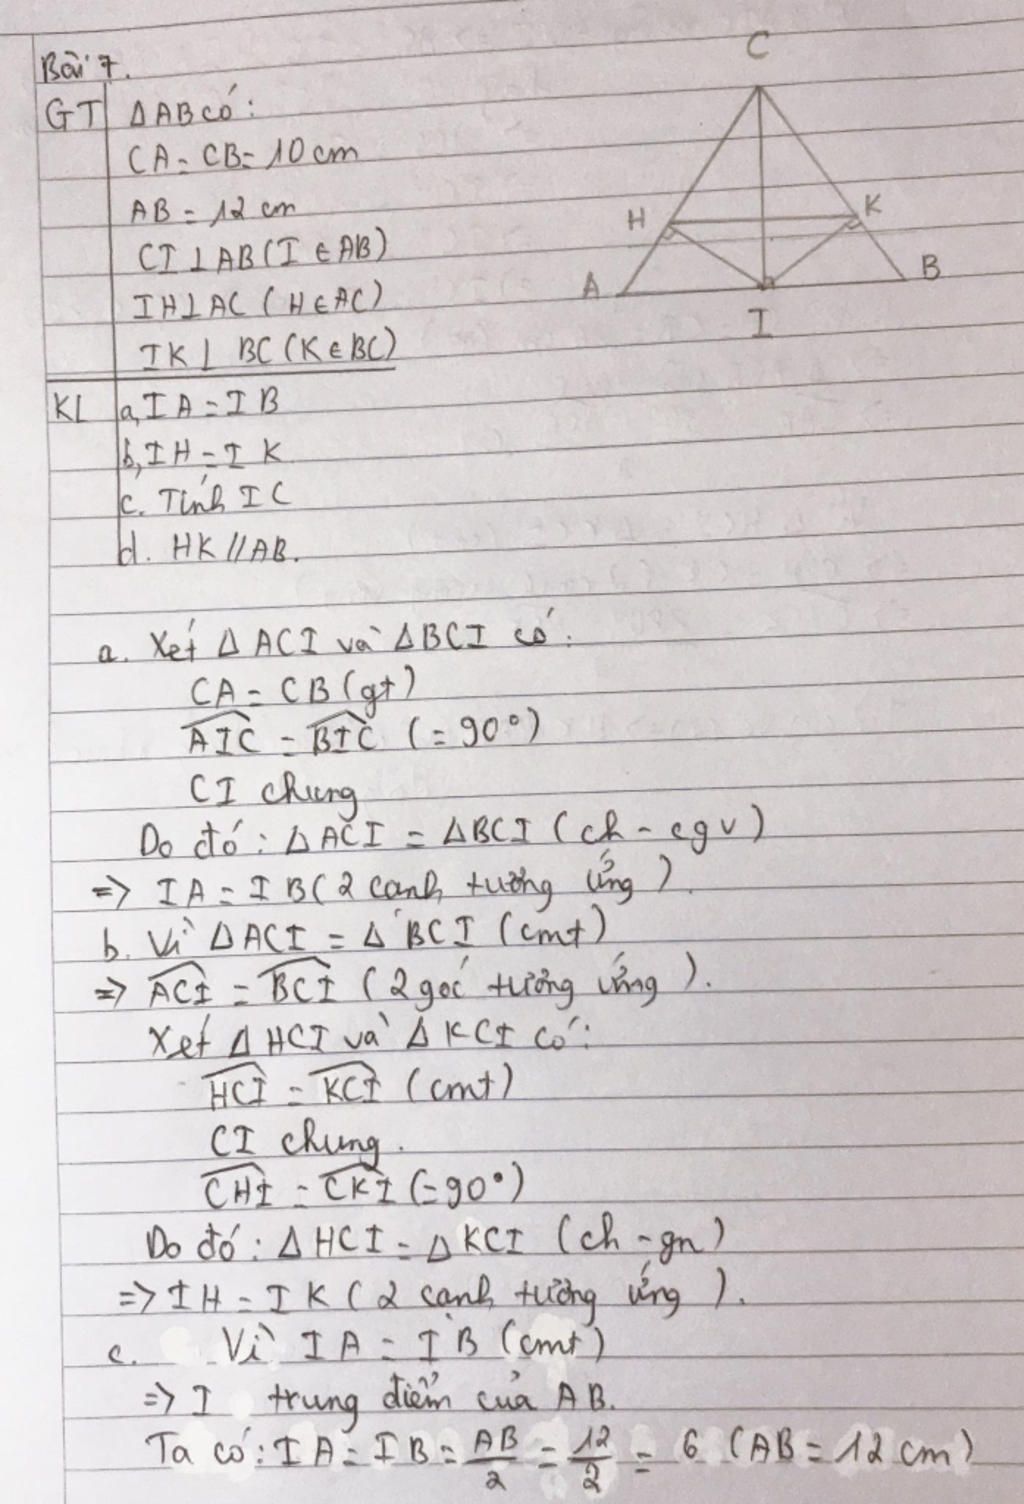 Bài 7.
GT ΔABC có:
CA = CB = 10 cm
AB = 12 cm
CI ⊥ AB (I ∈ AB)
IH ⊥ AC (H ∈ AC)
IK ⊥ BC (K ∈ BC)
KL a, IA = IB
b, IH = IK
c. Tính IC
d. HK // AB.
C
H
K
A
B
I
a. Xét Δ ACI và ΔBCI có:
CA = CB (gt)
\widehat{AIC} = \widehat{BIC} (= 90°)
CI chung
Do đó: ΔACI = ΔBCI (ch - cgv)
=> IA = IB (2 cạnh tương ứng).
b. Vì ΔACI = ΔBCI (cmt)
=> \widehat{ACI} = \widehat{BCI} (2 góc tương ứng).
Xét Δ HCI và Δ KCI có:
\widehat{HCI} = \widehat{KCI} (cmt)
CI chung.
\widehat{CHI} = \widehat{CKI} (= 90°)
Do đó: Δ HCI = Δ KCI (ch - gn)
=> IH = IK (2 cạnh tương ứng).
c. Vì IA = IB (cmt)
=> I trung điểm của AB.
Ta có: IA = IB = AB/2 = 12/2 = 6 (AB = 12 cm)